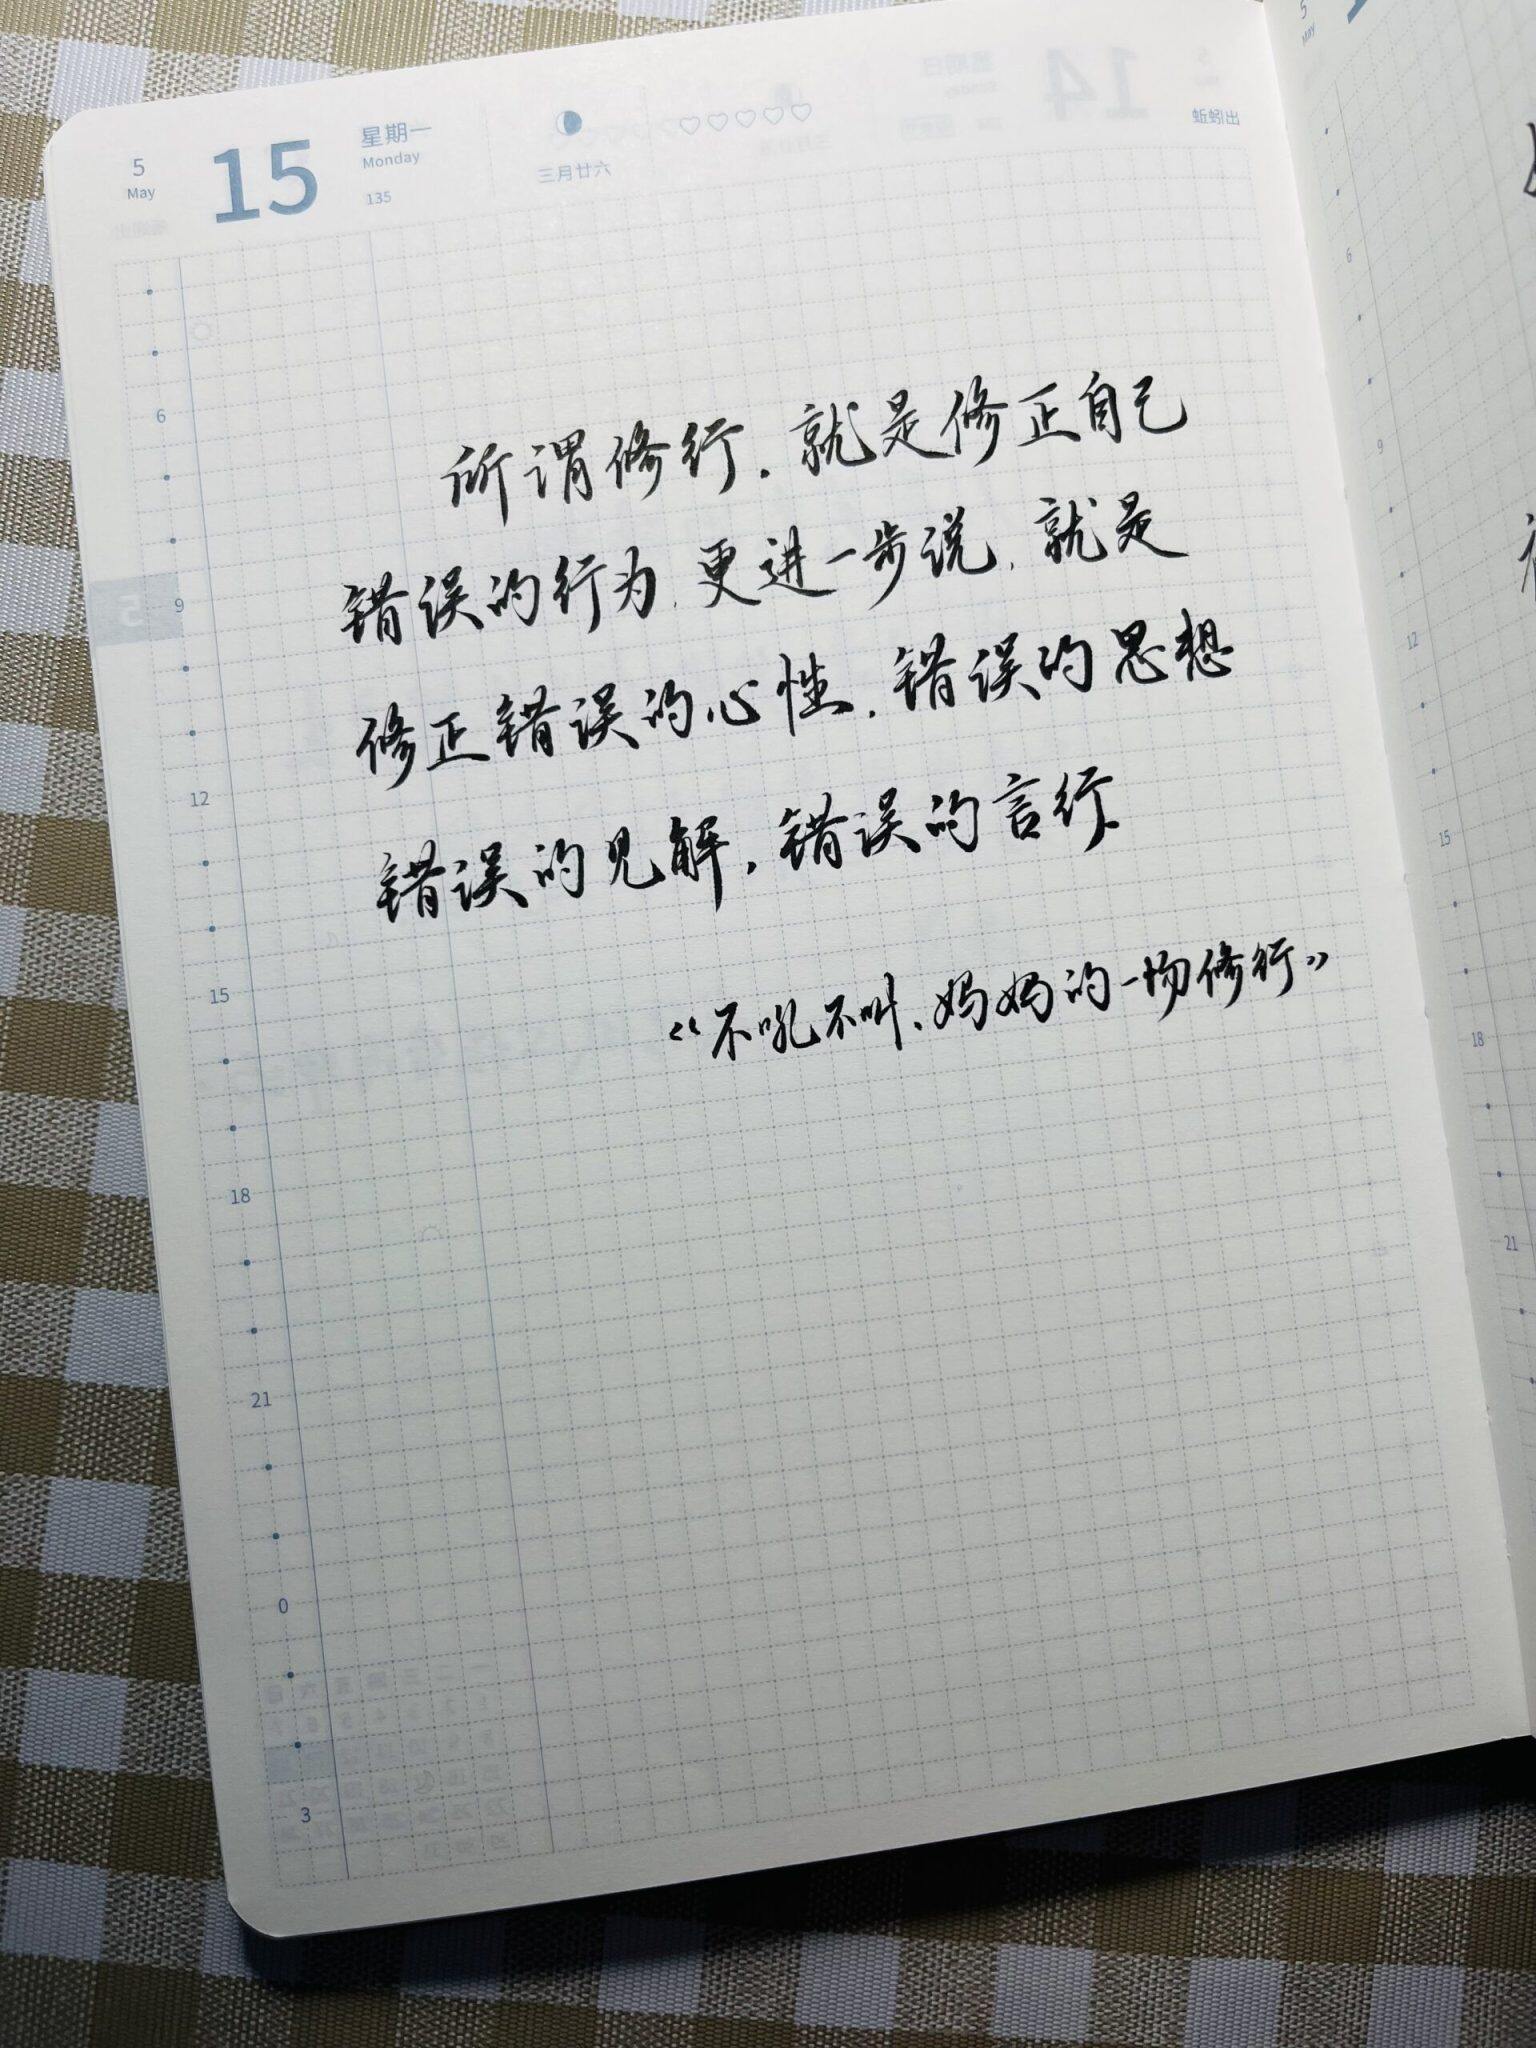 5
May
15
星期一
Monday
135
三月廿六
蚯蚓出
所谓修行，就是修正自己
错误的行为，更进一步说，就是
修正错误的心性，错误的思想
错误的见解，错误的言行
《不吼不叫、妈妈的一场修行》
6
9
12
15
18
21
0
3
5
May
6
9
12
15
18
21